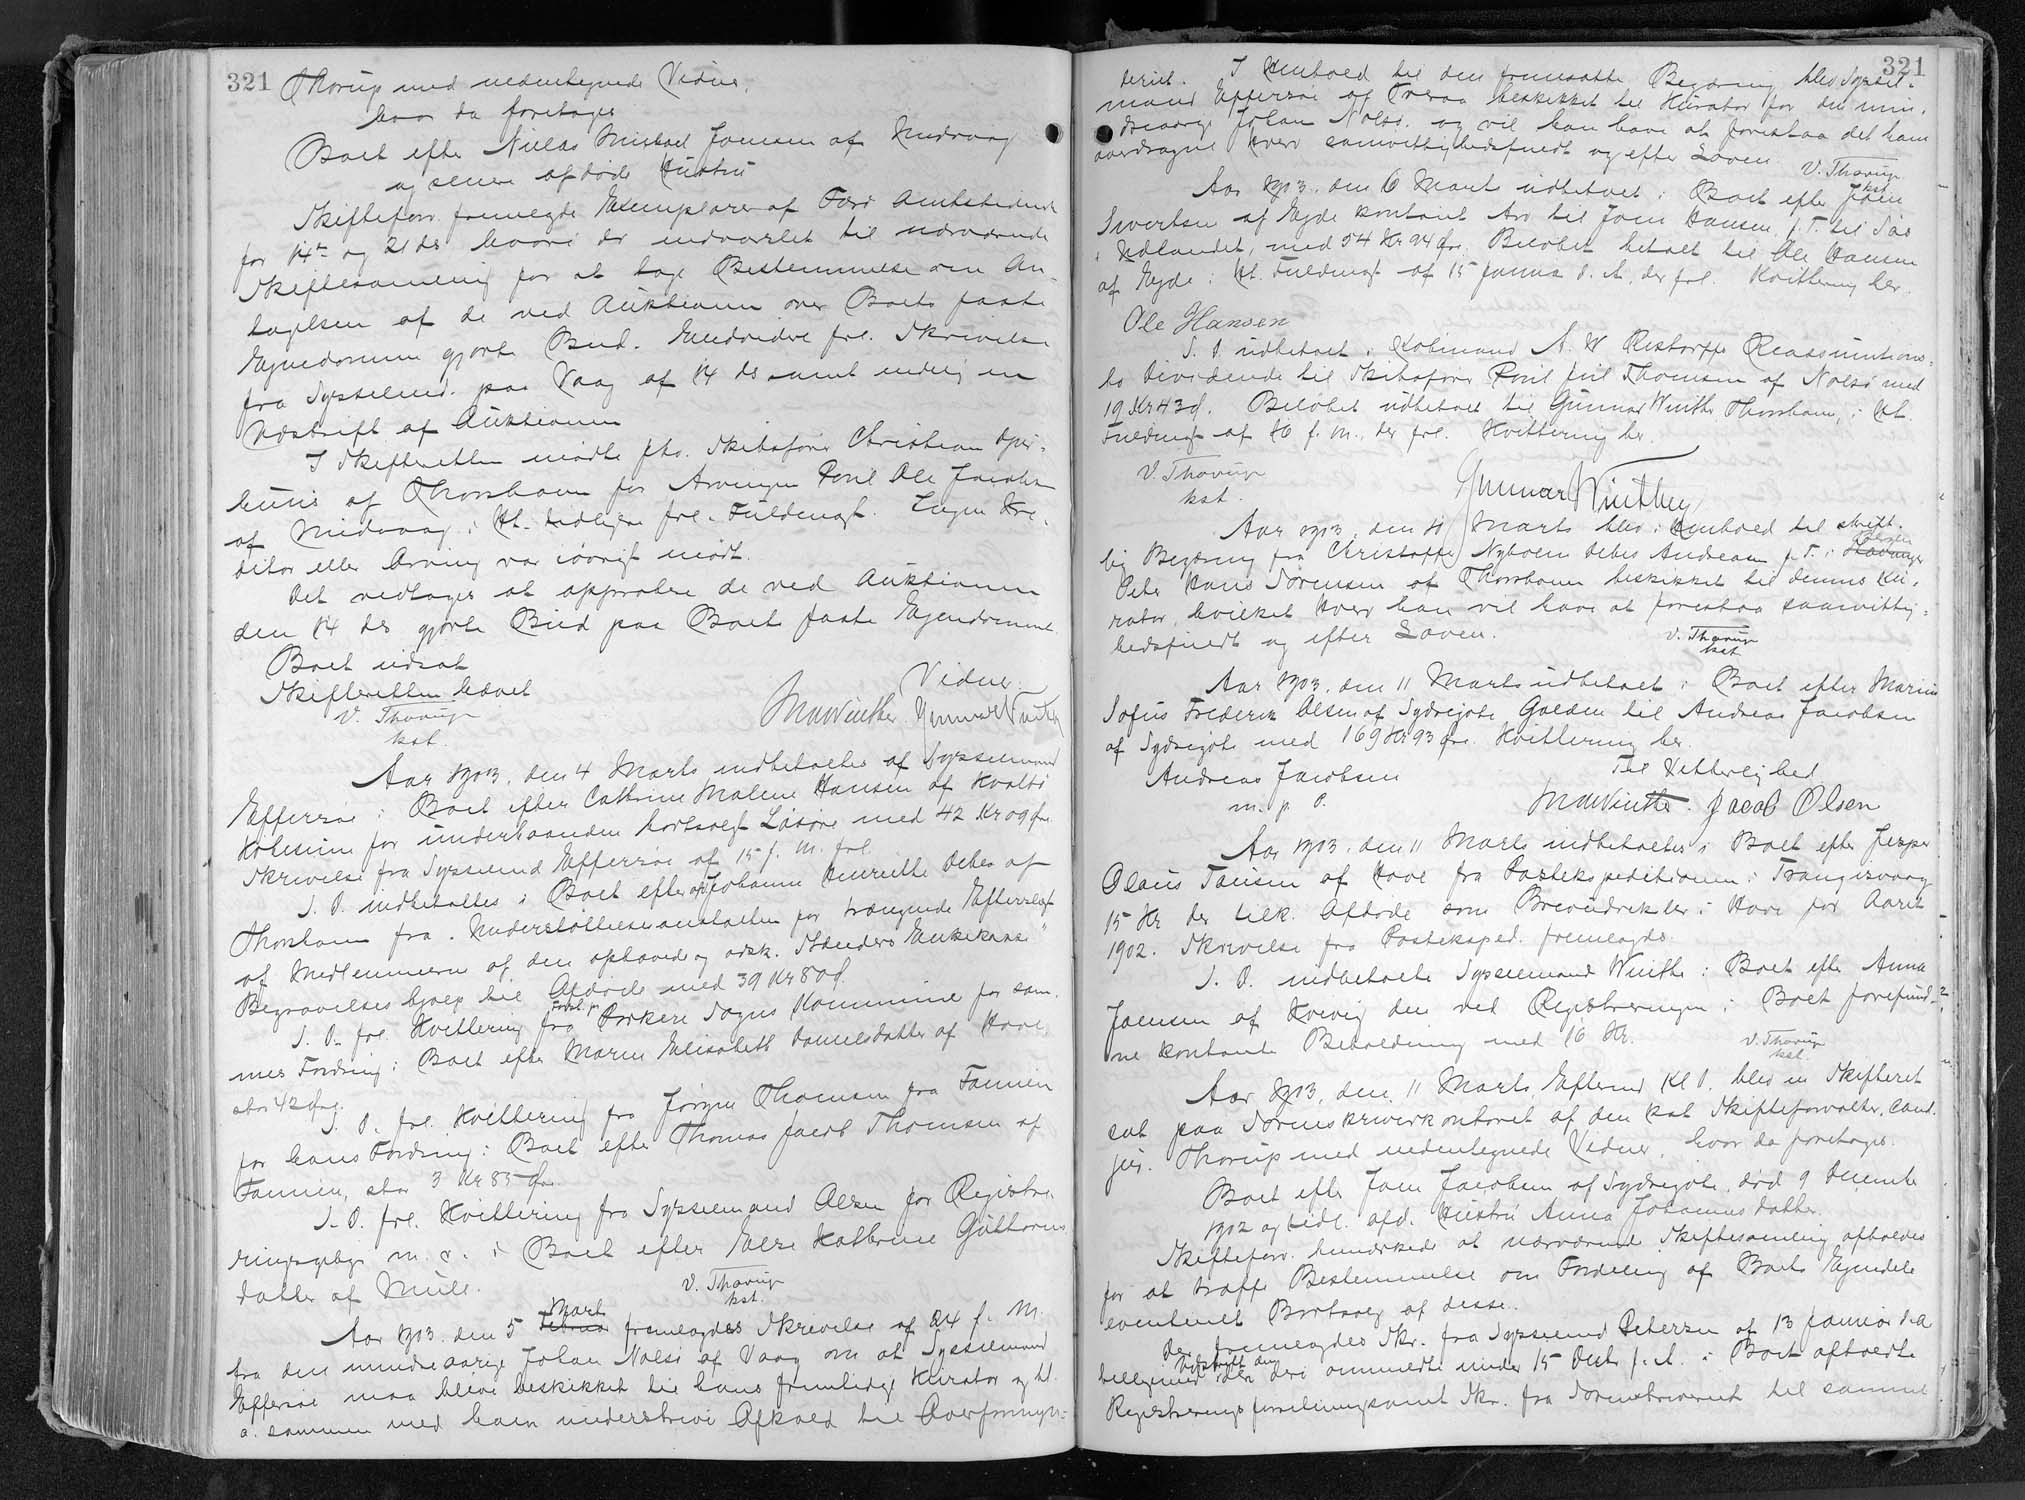 321
Thorup med undertegnede Vidner,
hvor da foretoges
Boet efter Niclas Michael Joensen af Midvaag
og senere afdøde Hustru
Skifteforv. fremlagde Exemplarer af Færø Amtstidende
for 14de og 21 ds hvori der indvarslet til nærværende
Skiftesamling for at tage Bestemmelse om An-
tagelsen af de ved Auktionen over Boets faste
Ejendomme gjorte Bud. Endvidere frl. Skrivelse
fra Sysselmd. paa Vaag af 14 ds samt endelig en
Udskrift af Auktionen
I Skifteretten mødte pho. Skibsfører Christian Djur-
huus af Thorshavn for Arvingen Poul Ole Jacobsen
af Midvaag i Hl. tidligere frl. Fuldmagt. Ingen Kre-
ditor eller Arving var iøvrigt mødt.
Det vedtoges at approbere de ved Auktionen
den 14 ds gjorte Bud paa Boets faste Ejendomme.
Boet udsat
Skifteretten hævet
V. Thorup
kst.
Vidner:
MWinther Gunnar Winther
Aar 1903, den 4 Marts indbetaltes af Sysselmand
Effersøe i Boet efter Cathrine Malene Hansen af Kvalbø
Købesum for underhaanden bortsolgt Løsøre med 42 Kr 09 Øre
Skrivelse fra Sysselmd Effersøe af 15 f. M. frl.
S. D. indbetaltes i Boet efter afd Johanne Henriette Debes af
Thorshavn fra "Understøttelsesanstalten for trængende Efterladte
af Medlemmerne af den ophævede og adsk. Stænders Enkekasse"
Begravelseshjælp til Afdøde med 39 Kr 80 Ø.
S. D. frl. Kvittering fra Porkere Sogns Kommune for sam-
mes Fordring i Boet efter Maren Elisabeth Danielsdatter af Hove,
stor 42 Øre.
S. D. frl. Kvittering fra Jørgen Thomsen fra Famien
for hans Fordring i Boet efter Thomas Jacob Thomsen af
Famien, stor 3 Kr 85 Øre.
S. D. frl. Kvittering fra Sysselmand Olsen for Registre-
ringsgebyr m. v. i Boet efter Else Kathrine Guttorms
datter af Mule.
V. Thorup
kst.
Aar 1903, den 5 Februar Marts fremlagdes Skrivelse af 24 f. M.
fra den mindreaarige Johan Nolsø af Vaag om at Sysselmand
Effersøe maa blive beskikket til hans fremtidige Kurator og bl.
a. sammen med ham underskrive Afkald til Overformyn-
321
deriet. I Henhold til den fremsatte Begæring blev Syssel-
mand Effersøe af Tveraa beskikket til Kurator for den min-
dreaarige Johan Nolsø og vil han have at forestaa det ham
overdragne Hverv samvittighedsfuldt og efter Loven.
V. Thorup
kst
Aar 1903, den 6 Marts udbetalt i Boet efter Joen
Sivertsen af Ejde kontant Arv til Joen Hansen, f. T. til Søs
i Udlandet, med 54 Kr 94 Øre. Beløbet betalt til Ole Hansen
af Ejde i Hl. Fuldmagt af 15 Januar d. A., der frl. Kvittering her.
Ole Hansen
S. D. udbetalt i Købmand A. W. Restorffs Reassumtions-
bo Dividende til Skibsfører Poul Juul Thomsen af Nolsø med
19 Kr 43 Ø. Beløbet udbetalt til Gunnar Winther Thorshavn, i Hl.
Fuldmagt af 16 f. M., der frl. Kvittering her.
V. Thorup
kst.
Gunnar Winther
Aar 1903, den 11 Marts blev i Henhold til skrift-
lig Begæring fra Christoffer Nyboen Debes Andreasen f. T. i
Peter Hans Sørensen af Thorshavn beskikket til dennes Ku-
rator, hvilket Hverv han vil have at forestaa samvittig-
hedsfuldt og efter Loven.
V. Thorup
kst
Aar 1903, den 11 Marts udbetalt i Boet efter Marius
Sofus Frederik Olsen af Sydregøte Gælden til Andreas Jacobsen
af Sydregøte med 169 Kr 93 Øre. Kvittering her.
Andreas Jacobsen
m. p. P.
Til Vitterlighed
MWinther. Jacob Olsen
Aar 1903, den 11 Marts indbetaltes i Boet efter Jesper
Olaus Tausen af Hove fra Postekspeditionen i Trangisvaag
15 Kr der tilk. Afdøde som Brevindsamler i Hove for Aaret
1902. Skrivelse fra Posteksped. fremlagdes.
S. D. indbetalte Sysselmand Winther i Boet efter Anna
Joensen af Kvivig den ved Registreringen i Boet forefund-
ne kontante Beholdning med 16 Kr.
V. Thorup
kst.
Aar 1903, den 11 Marts, Efterm. Kl 1. blev en Skifteret
sat paa Sorenskriverkontoret af den kst Skifteforvalter, cand.
jur. Thorup med undertegnede Vidner, hvor da foretoges:
Boet efter Joen Jacobsen af Sydregøte, død 9 December
1902 og tidl. afd. Hustru Anna Johannesdatter.
Skifteforv. bemærkede at nærværende Skiftesamling afholdes
for at træffe Bestemmelse om Fordeling af Boets Ejendele
eventuelt Bortsalg af disse.
Der fremlagdes Skr. fra Sysselmd Petersen af 13 Januar d. A.
Udskrift den
tilligemed den deri ommeldte under 15 Decbr. f. A. i Boet afholdte
Registreringsforretning samt Skr. fra Sorenskriveriet til samme